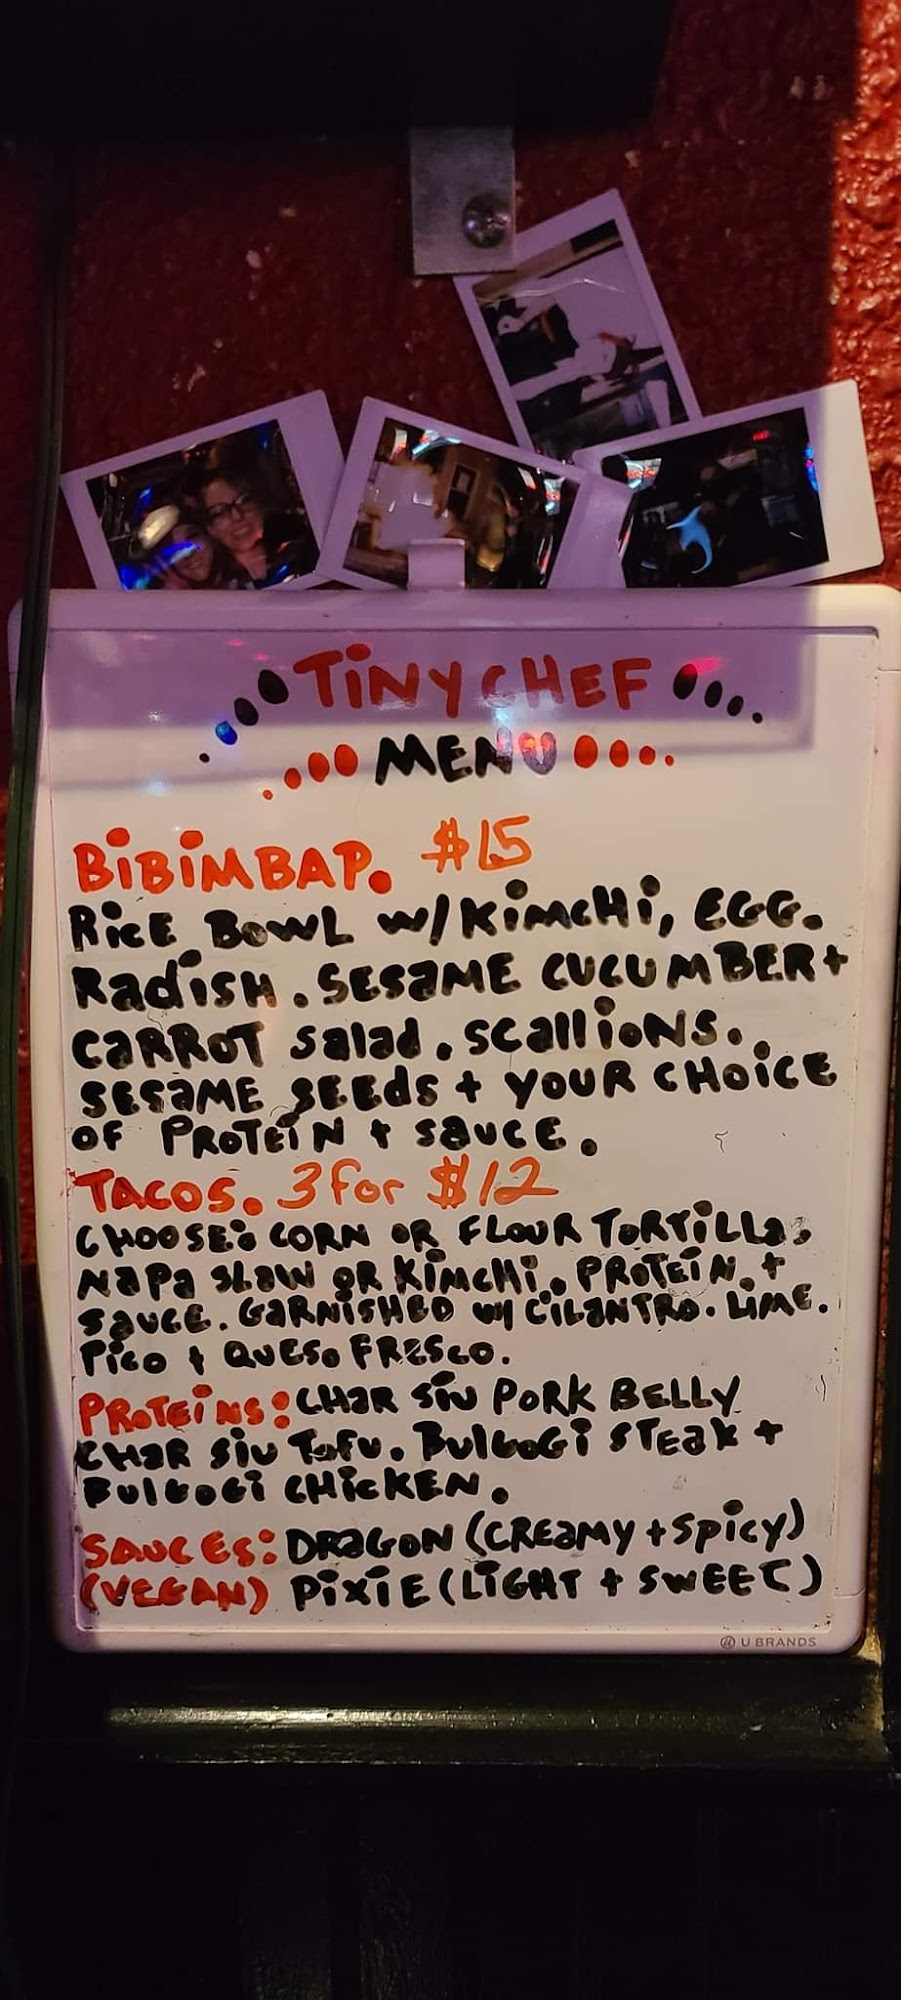 TiNY CHEF
MENU
BiBiMBAP. $15
RicE BOWL W/KiMCHi, EGG.
RadiSH. SESAME CUCUMBER+
CARROT Salad. SCalliONS.
SESAME SEEdS + YOUR CHOiCE
OF PROTEiN + SaUCE.
TACOS. 3 for $12
CHOOSE: CORN OR FLOUR TORTILLAS
NAPA SLAW OR KiMCHi. PROTEiN. +
SAUCE. GARNISHED W/ CiLANTRO. LiME.
PiCO + QUESO FRESCO.
PROTEiNS: CHAR SiU PORK BELLY
CHAR SiU TOFU. BULGOGi STEAK +
BULGOGi CHiCKEN.
SAUCES: DRAGON (CREAMY + SPiCY)
(VEGAN) PiXiE (LiGHT + SWEET)
U BRANDS